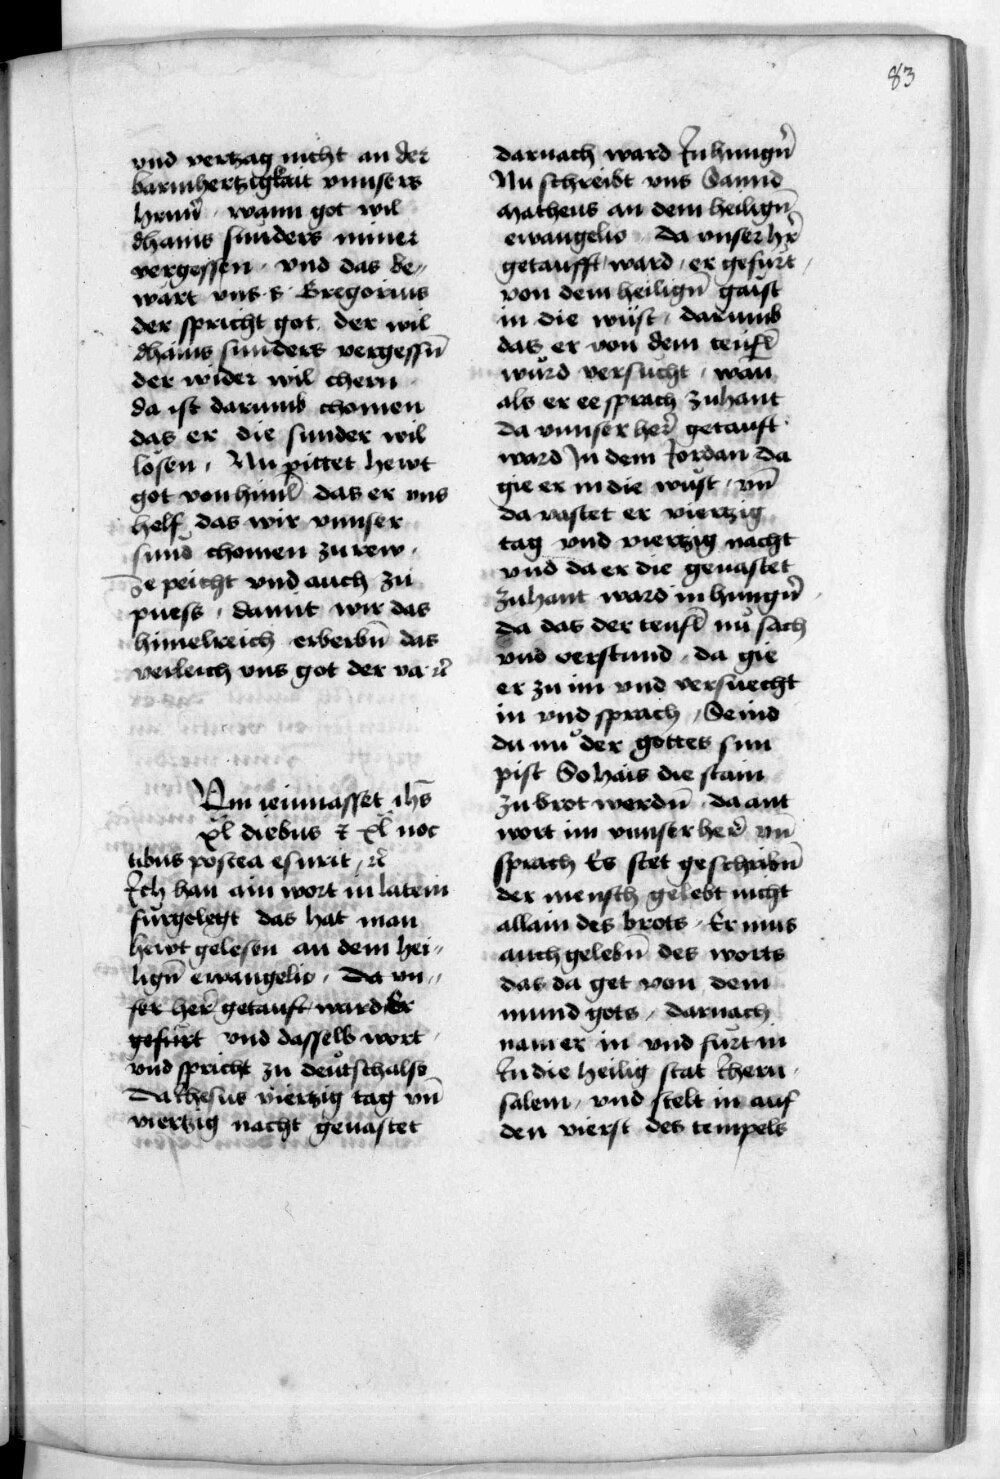 83
und vertzag nicht an der
barmhertzigkait unnsers
herrn̄ . wann got wil
dhains sunders nimer
vergessen . und das be„
wärt uns s. Gregorius
der spricht got der wil
dhains sunders vergessn̄
der wider wil chern
da ist darumb chomen
das er die sunder wil
lösen . Nu pittet hewt
got von himl̄ das er uns
helf das wir unnser
sund chomen zu rew .
Ze peicht und auch zu
puess . damit wir das
himelreich erberbn̄ das
verleich uns got der va ꝛc̄
Cum ieiunasset ih̄s
xl diebus ⁊ xl noc
tibus postea esurit . ꝛc̄
Ich han ain wort in latein
furgelegt das hat man
hewt gelesen an dem hei„
lign̄ ewangelio . Da un„
ser her̄ getauft ward Er
gefürt und dasselb wort
und spricht zu deutsch also
Da Ihesus viertzig tag un̄
viertzig nacht gevastet
darnach ward In hungrn̄
Nu schreibt uns Sannd
Matheus an dem heilign̄
ewangelio . Da unser hr̄
getaufft ward . er gefürt .
von dem heilign̄ gaist
in die wüst . darumb
das er von dem teufl̄
würd versucht . wan̄
als er ee sprach zuhant
da unnser her̄ getauft .
ward In dem Jordan da
gie er in die wüst . un̄
da vastet er viertzig
tag und viertzig nacht
und da er die gevastet
zuhant ward in hungrn̄ .
da das der teufl̄ nu sach
und verstund . da gie
er zu im und versuecht
in und sprach . Seind
du nu der gottes sun
pist So hais die stain
zu brot werdn̄ . da ant
wort im unnser her̄ un̄
sprach Es stet geschribn̄
der mensch gelebt nicht
allain des brots . Er mus
auch gelebn̄ des worts
das da get von dem
mund gots . darnach
nam er in und furt in
In die heilig stat Iheru„
salem . und stelt in auf
den vierst des tempels